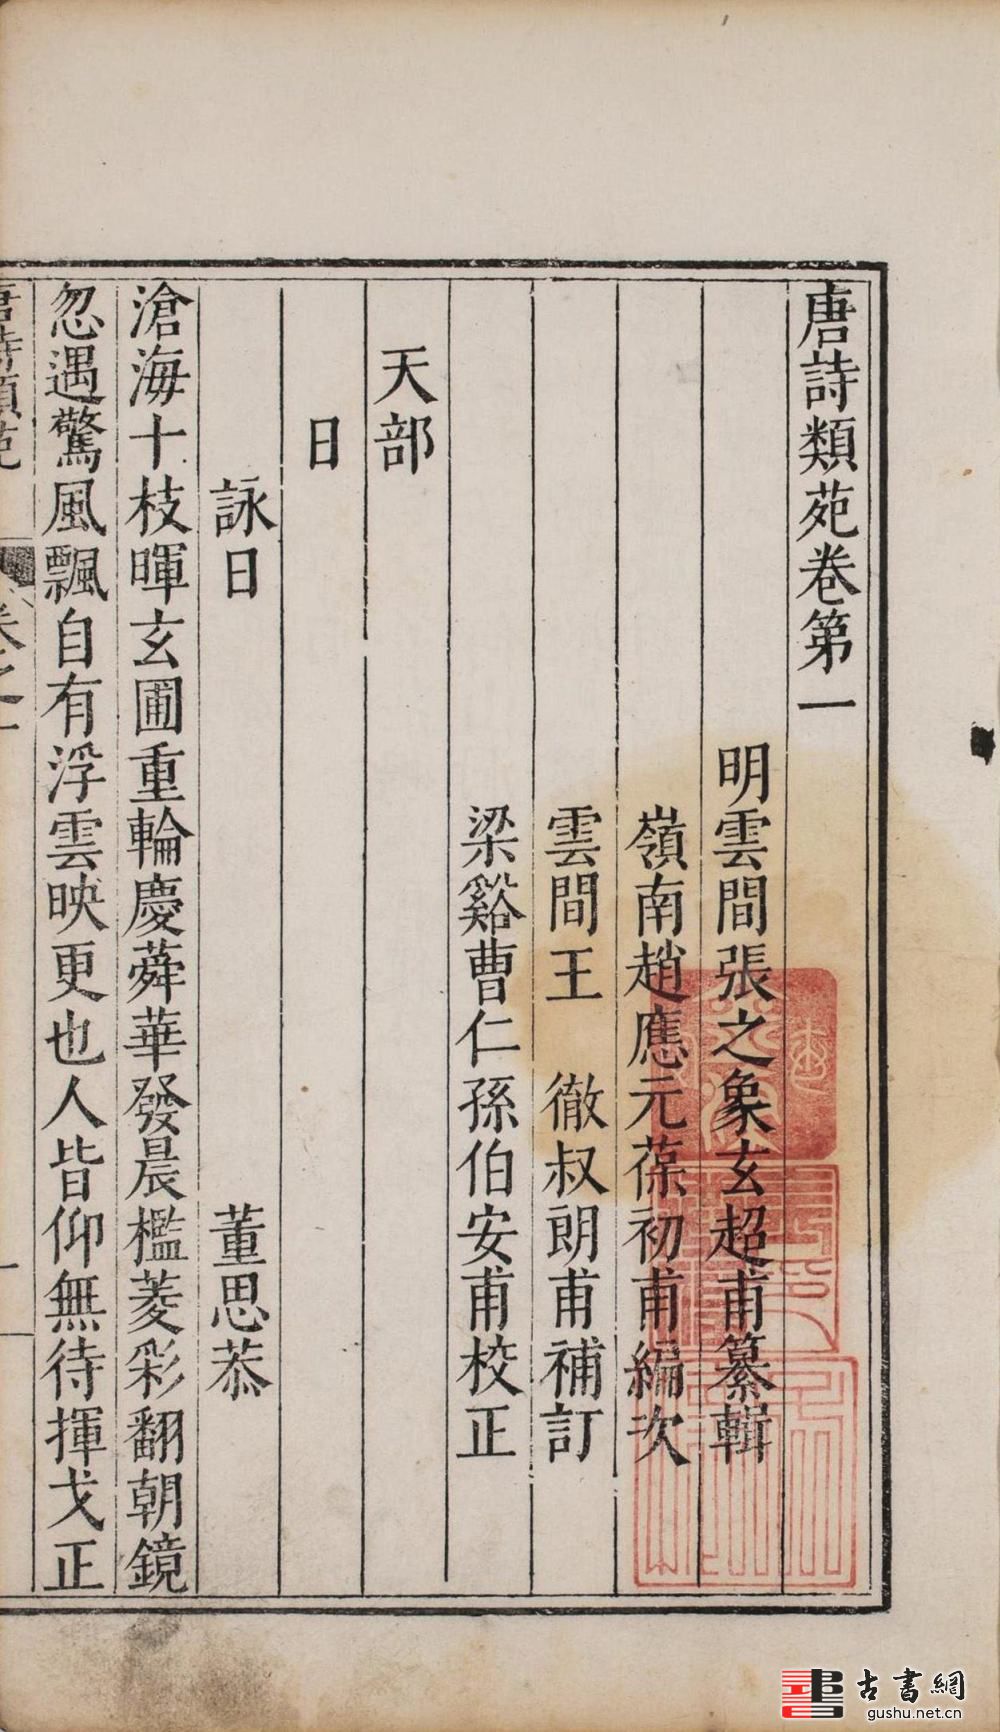 唐詩類苑卷第一
明雲間張之象玄超甫纂輯
嶺南趙應元葆初甫編次
雲間王　徹叔朗甫補訂
梁谿曹仁孫伯安甫校正
天部
日
詠日　董思恭
滄海十枝暉玄圃重輪慶蕣華發晨檻菱彩翻朝鏡
忽遇驚風飄自有浮雲映更也人皆仰無待揮戈正
唐詩類苑　卷之一　一
古書網
gushu.net.cn